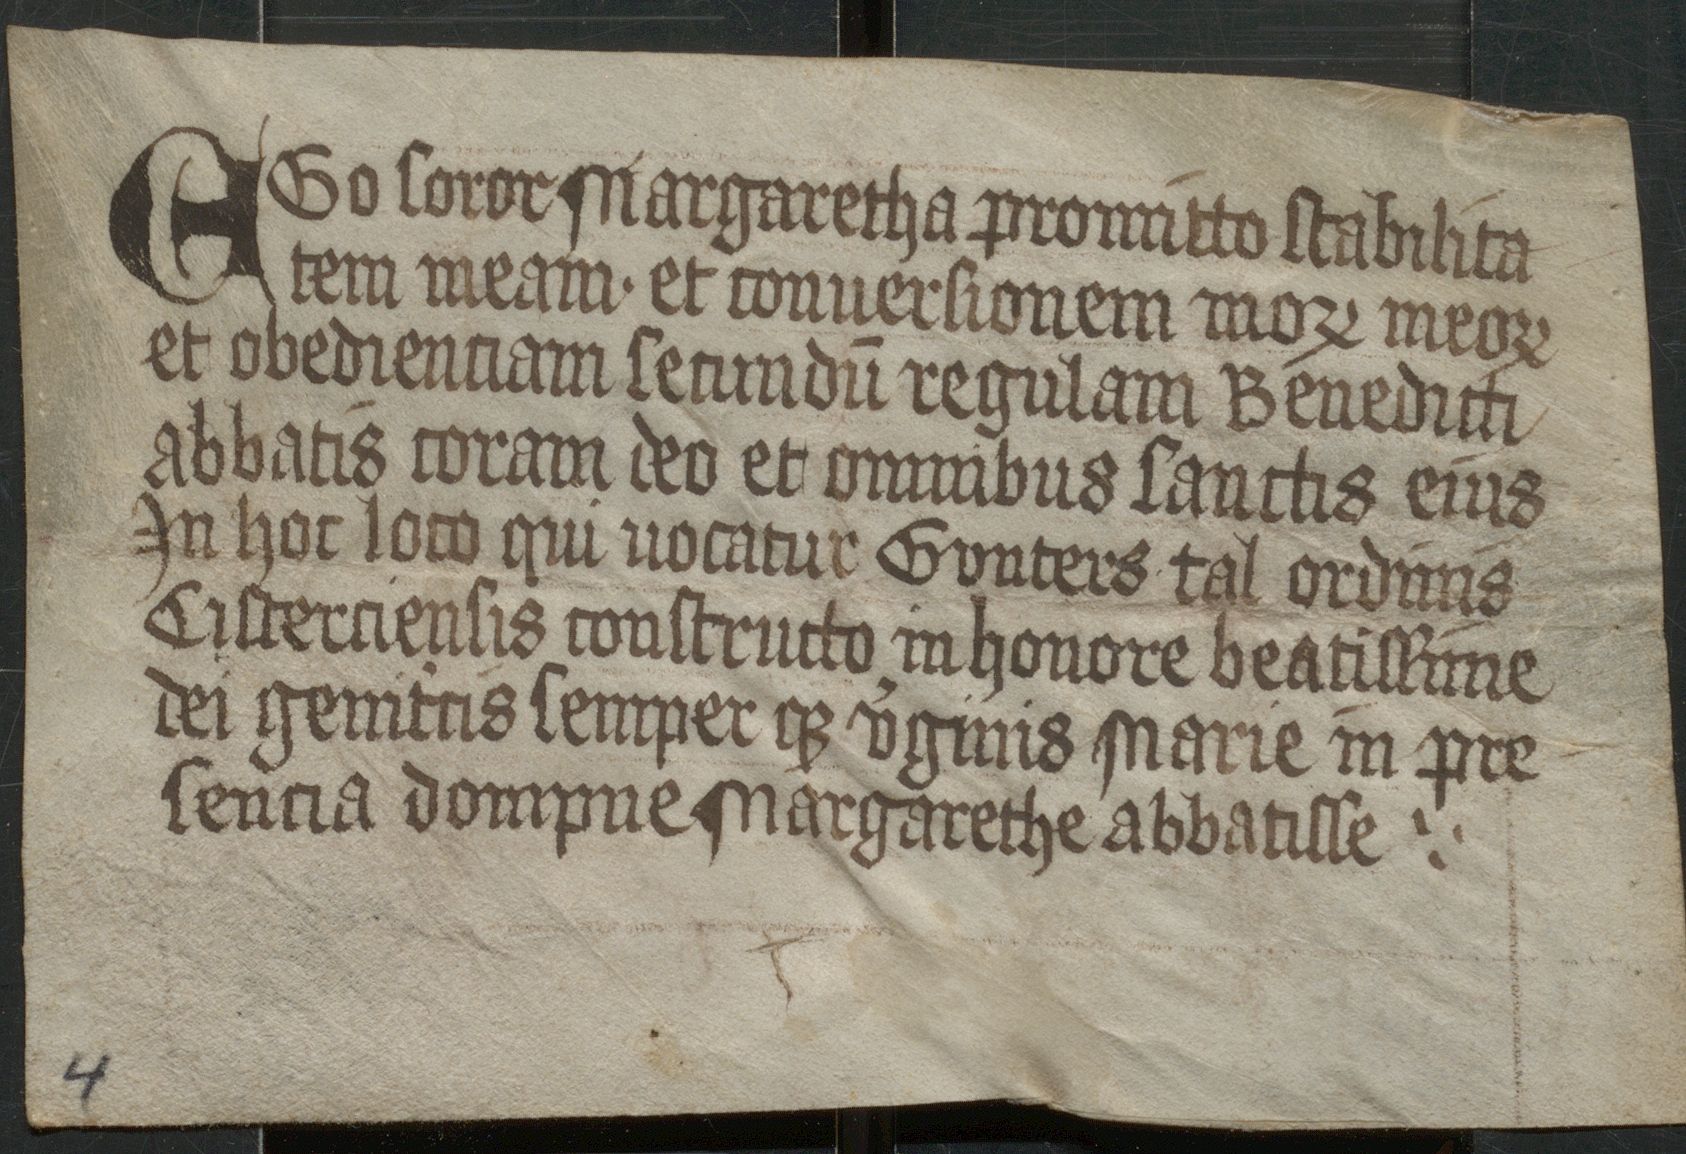 EGo soror Margaretha promitto stabilita
tem meam· et conuersionem moꝝ meoꝝ
et obedienciam secundū regulam Benedicti
abbatis coram deo et omnibus sanctis eius
In hoc loco qui uocatur Gvnters tal ordinis
Cisterciensis constructo in honore beatissime
dei genitͥcis semper qꝫ v̓ginis Marie in pre
sencia dompne Margarethe abbatisse
4